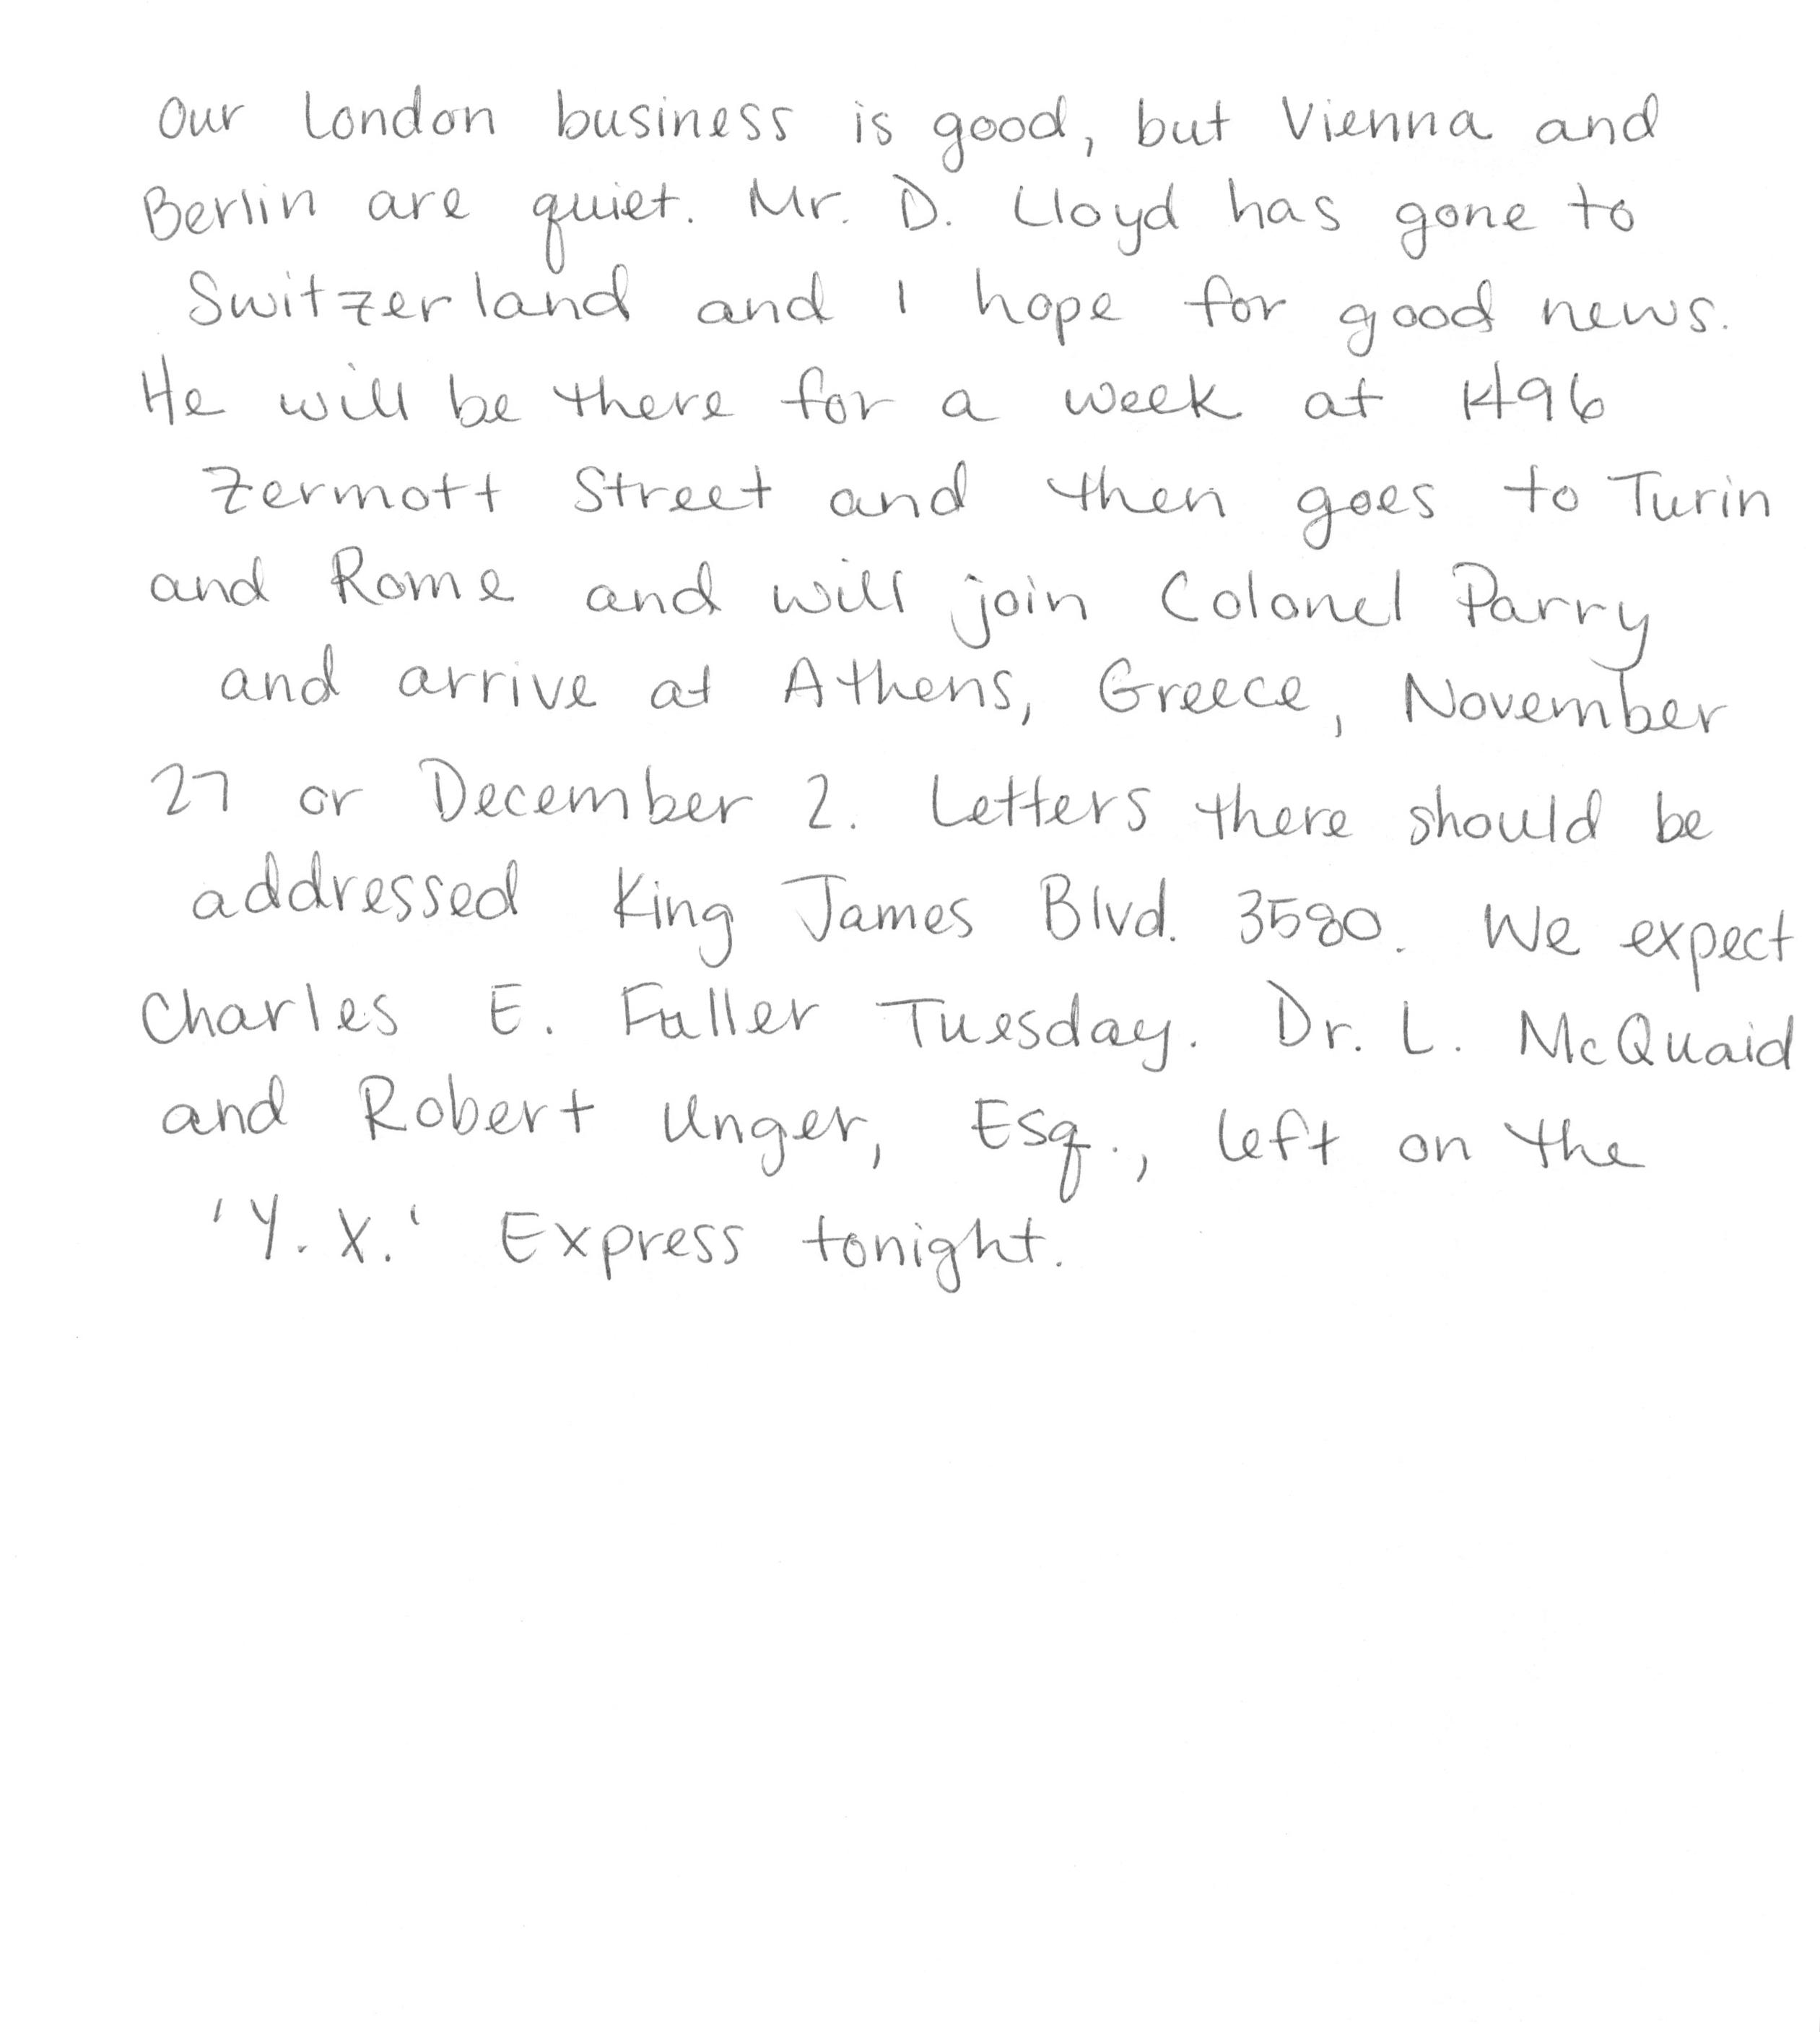 Our London business is good, but Vienna and
Berlin are quiet. Mr. D. Lloyd has gone to
Switzerland and I hope for good news.
He will be there for a week at 1496
Zermott Street and then goes to Turin
and Rome and will join Colonel Parry
and arrive at Athens, Greece, November
27 or December 2. Letters there should be
addressed King James Blvd. 3580. We expect
Charles E. Fuller Tuesday. Dr. L. McQuaid
and Robert Unger, Esq., left on the
'Y. X.' Express tonight.